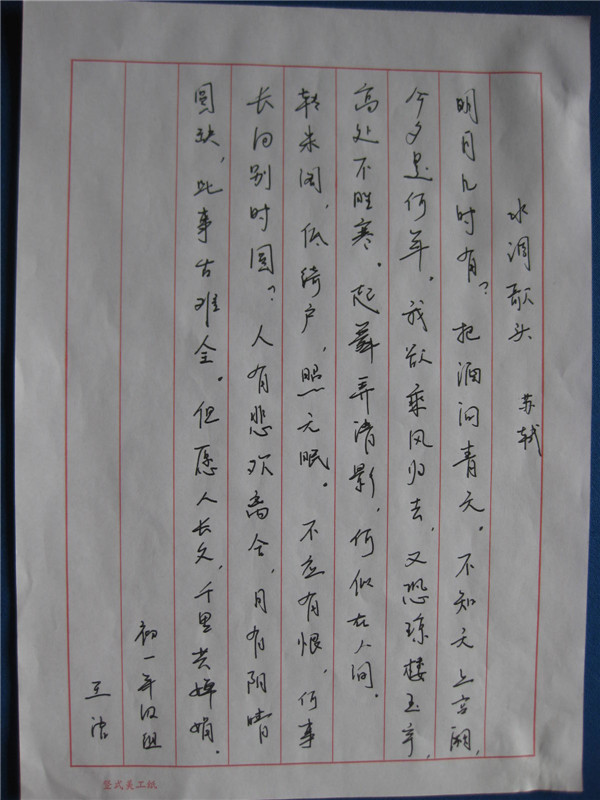 水调歌头 苏轼
明月几时有？把酒问青天。不知天上宫阙，
今夕是何年。我欲乘风归去，又恐琼楼玉宇，
高处不胜寒。起舞弄清影，何似在人间．
转朱阁，低绮户，照无眠。不应有恨，何事
长向别时圆？人有悲欢离合，月有阴晴
圆缺，此事古难全。但愿人长久，千里共婵娟．
初一年级组
竖式美工纸